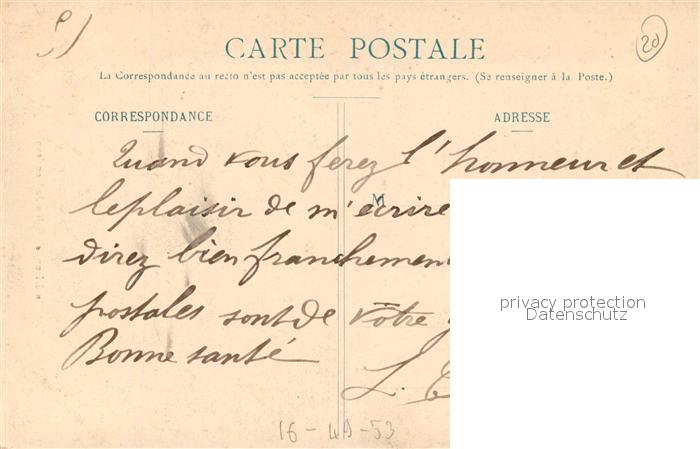 20
CARTE POSTALE
La Correspondance au recto n'est pas acceptée par tous les pays étrangers. (Se renseigner à la Poste.)
CORRESPONDANCE
ADRESSE
Quand vous ferez l'honneur et
le plaisir de m'écrire
M
direz bien franchemen
postales sont de vôtre
Bonne santé
L.
privacy protection
Datenschutz